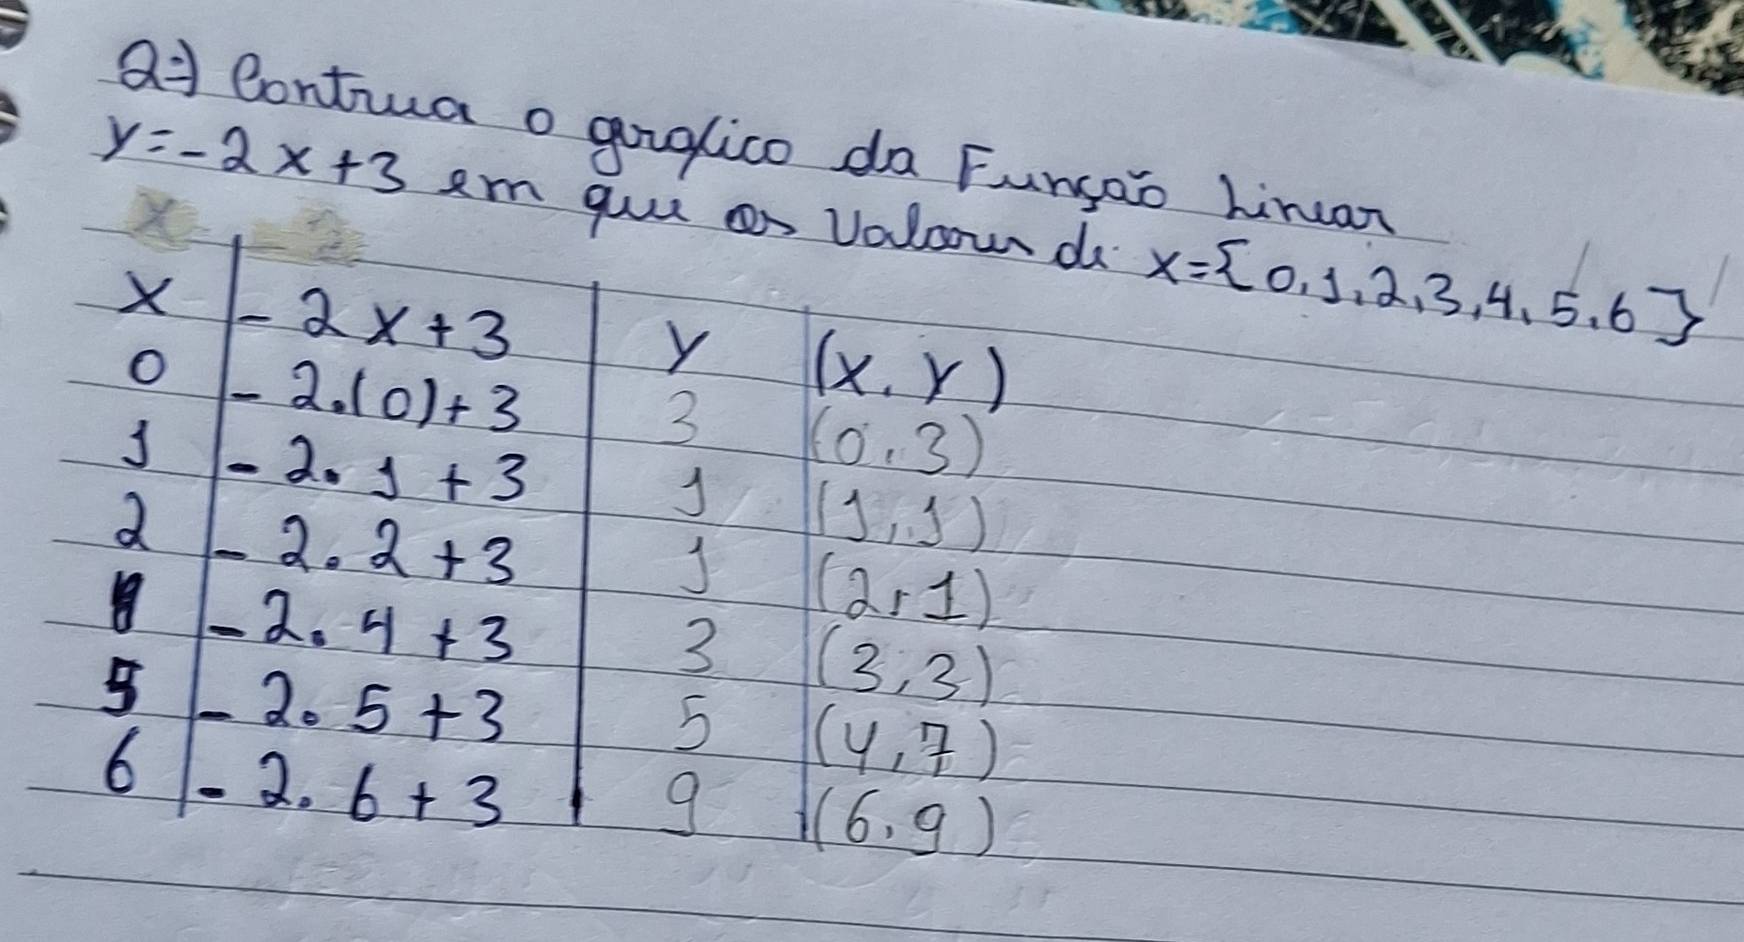 2=) Contrua o gurafico da Função Linear
y=-2x+3 em que os Valores de x={0,1,2,3,4,5,6}
x -2x+3 y (x,y)
0 -2.(0)+3 3 (0,3)
1 -2.1+3 1 (1,1)
2 -2.2+3 1 (2,1)
-2.4+3 3 (3,3)
5 -2.5+3 5 (4,7)
6 -2.6+3 9 (6,9)